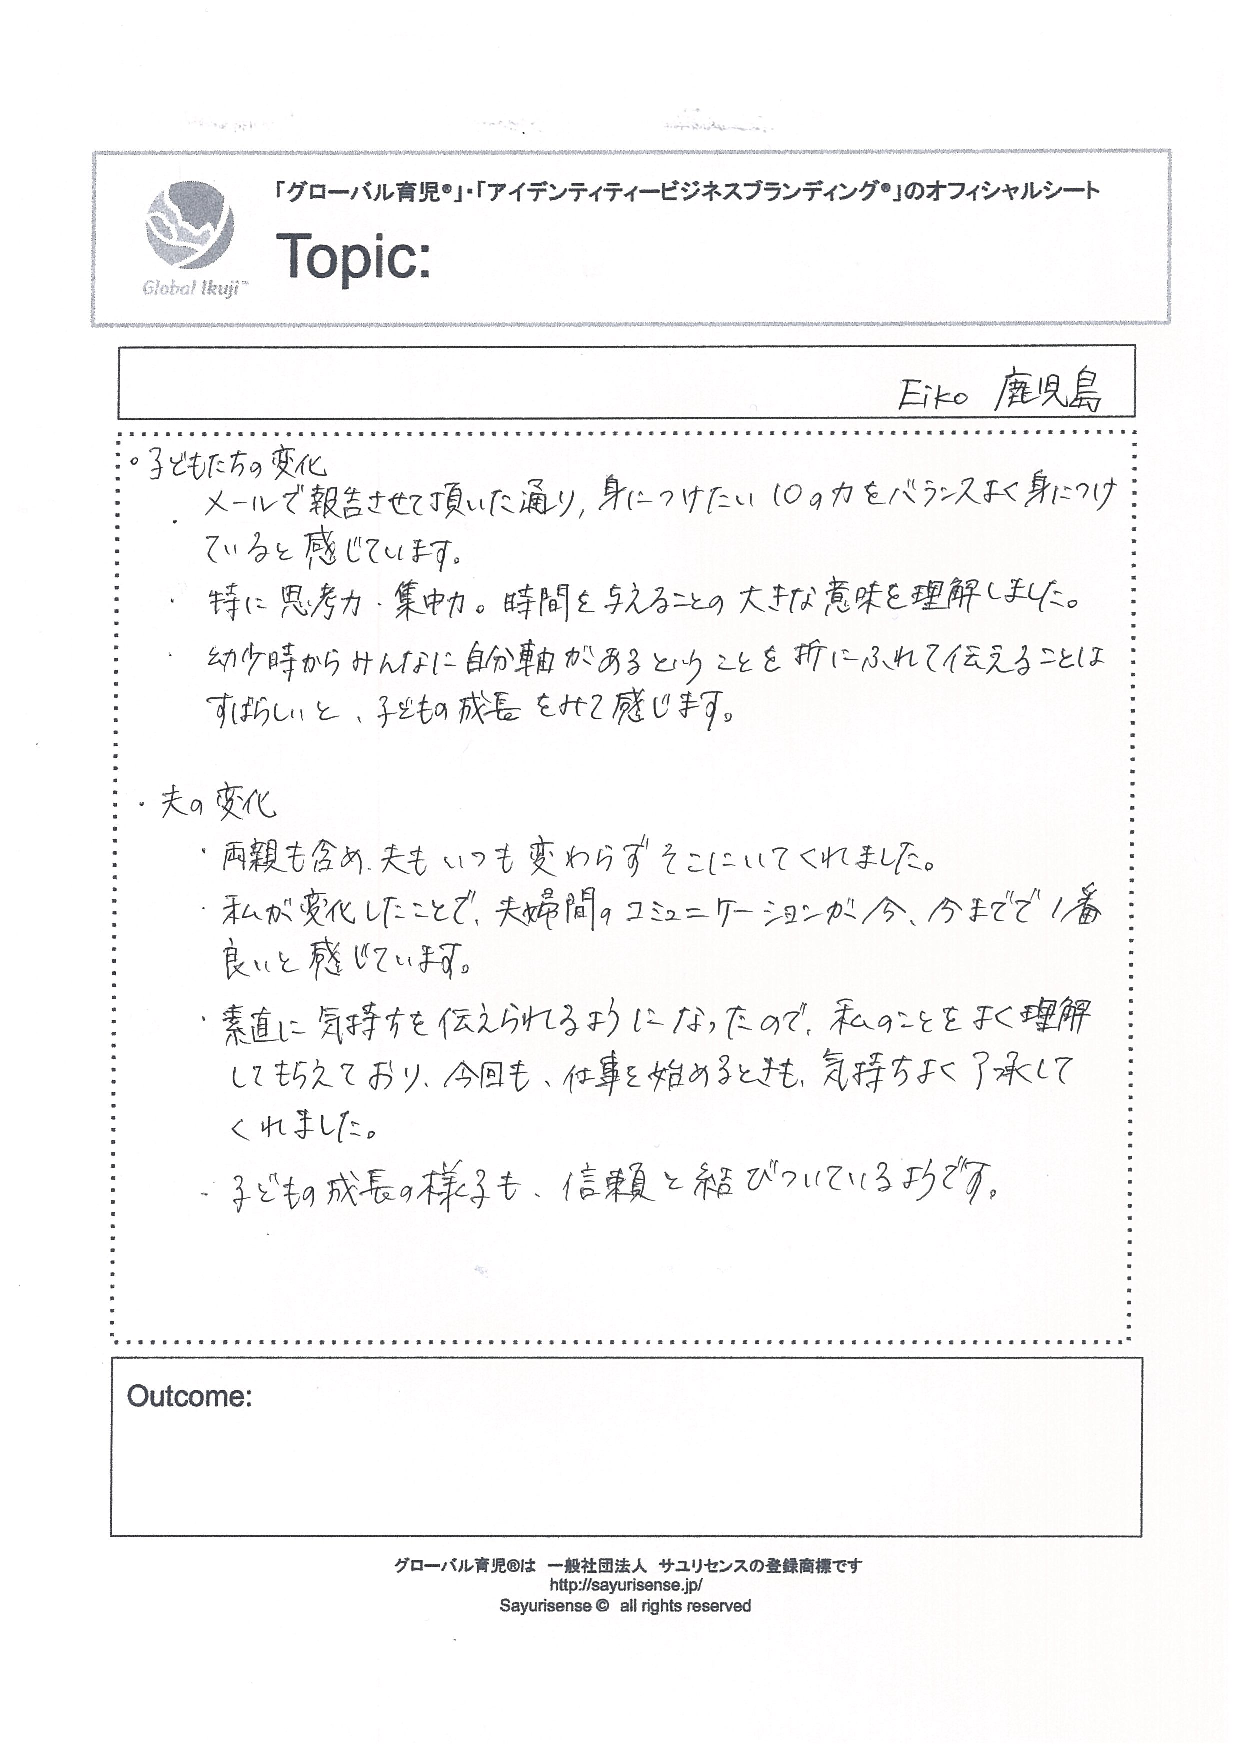 「グローバル育児®」・「アイデンティティービジネスブランディング®」のオフィシャルシート
Global Ikuji™
Topic:
Eiko 鹿児島
。子どもたちの変化
・メールで報告させて頂いた通り, 身につけたい10の力をバランスよく身につけ
ていると感じています。
・特に思考力・集中力。時間を与えることの大きな意味を理解しました。
・幼少時からみんなに自分軸があるということを折にふれて伝えることは
すばらしいと、子どもの成長をみて感じます。
・夫の変化
・両親も含め、夫もいつも変わらずそこにいてくれました。
・私が変化したことで、夫婦間のコミュニケーションが今、今までで1番
良いと感じています。
・素直に気持ちを伝えられるようになったので、私のことをよく理解
してもらえており、今回も、仕事を始めるときも、気持ちよく了承して
くれました。
・子どもの成長の様子も、信頼と結びついているようです。
Outcome:
グローバル育児®は 一般社団法人 サユリセンスの登録商標です
http://sayurisense.jp/
Sayurisense © all rights reserved